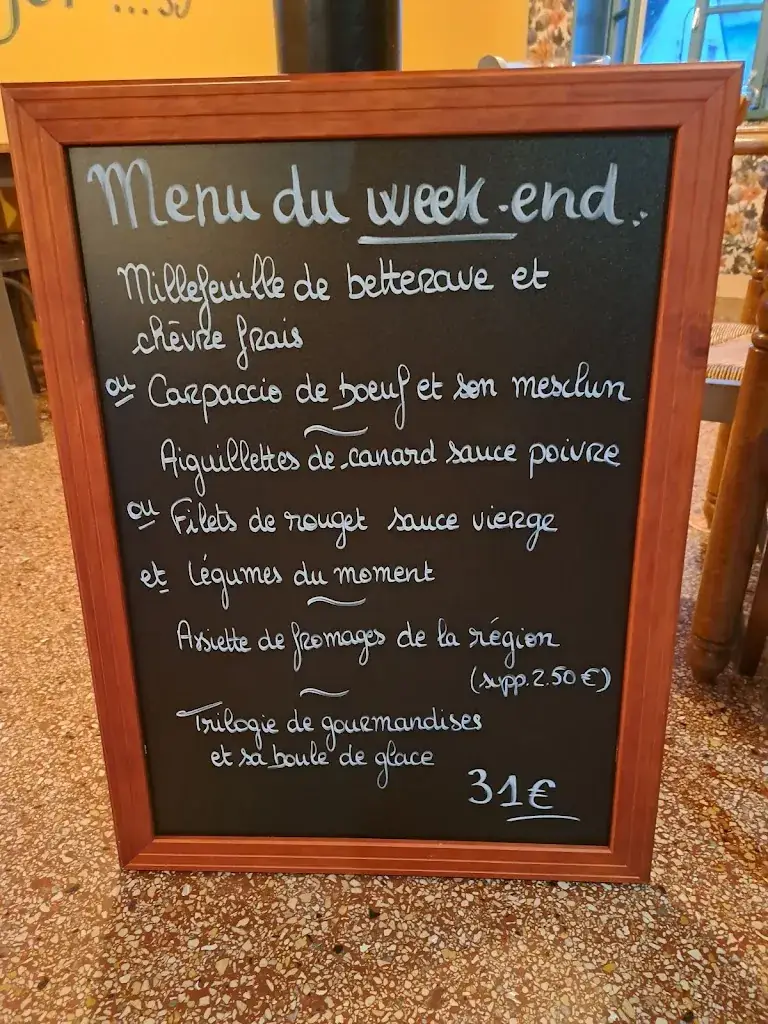 Menu du week-end..
Millefeuille de betterave et
chèvre frais
ou Carpaccio de boeuf et son mesclun
Aiguillettes de canard sauce poivre
ou Filets de rouget sauce vierge
et légumes du moment
Assiette de fromages de la région
(supp. 2.50 €)
Trilogie de gourmandises
et sa boule de glace
31€